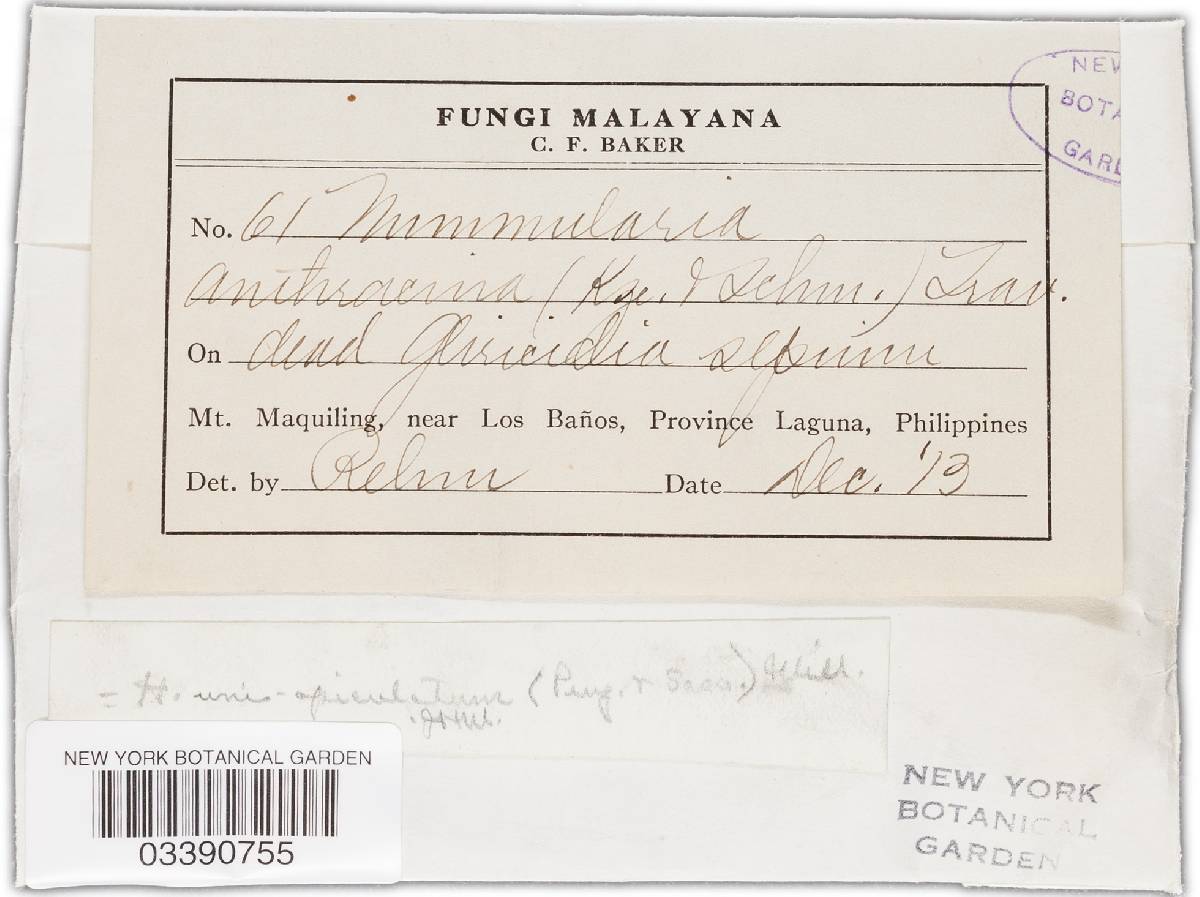 NEW
BOTA
GARD
FUNGI MALAYANA
C. F. BAKER
No. 61 Nummularia
anthracina (Kze. & Schm.) Trav.
On dead Gliricidia sepium
Mt. Maquiling, near Los Baños, Province Laguna, Philippines
Det. by Rehm Date Dec. '13
= H. uni-apiculatum (Penz. & Sacc.) Mill.
JHM.
NEW YORK BOTANICAL GARDEN
03390755
NEW YORK
BOTANICAL
GARDEN